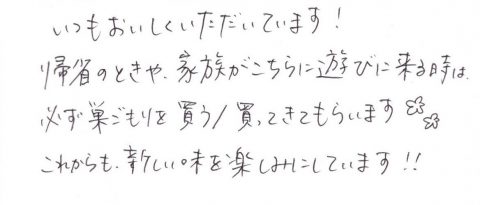 いつもおいしくいただいています!
帰省のときや、家族がこちらに遊びに来る時は、
必ず巣ごもりを買う/買ってきてもらいます
これからも、新しい味を楽しみにしています!!